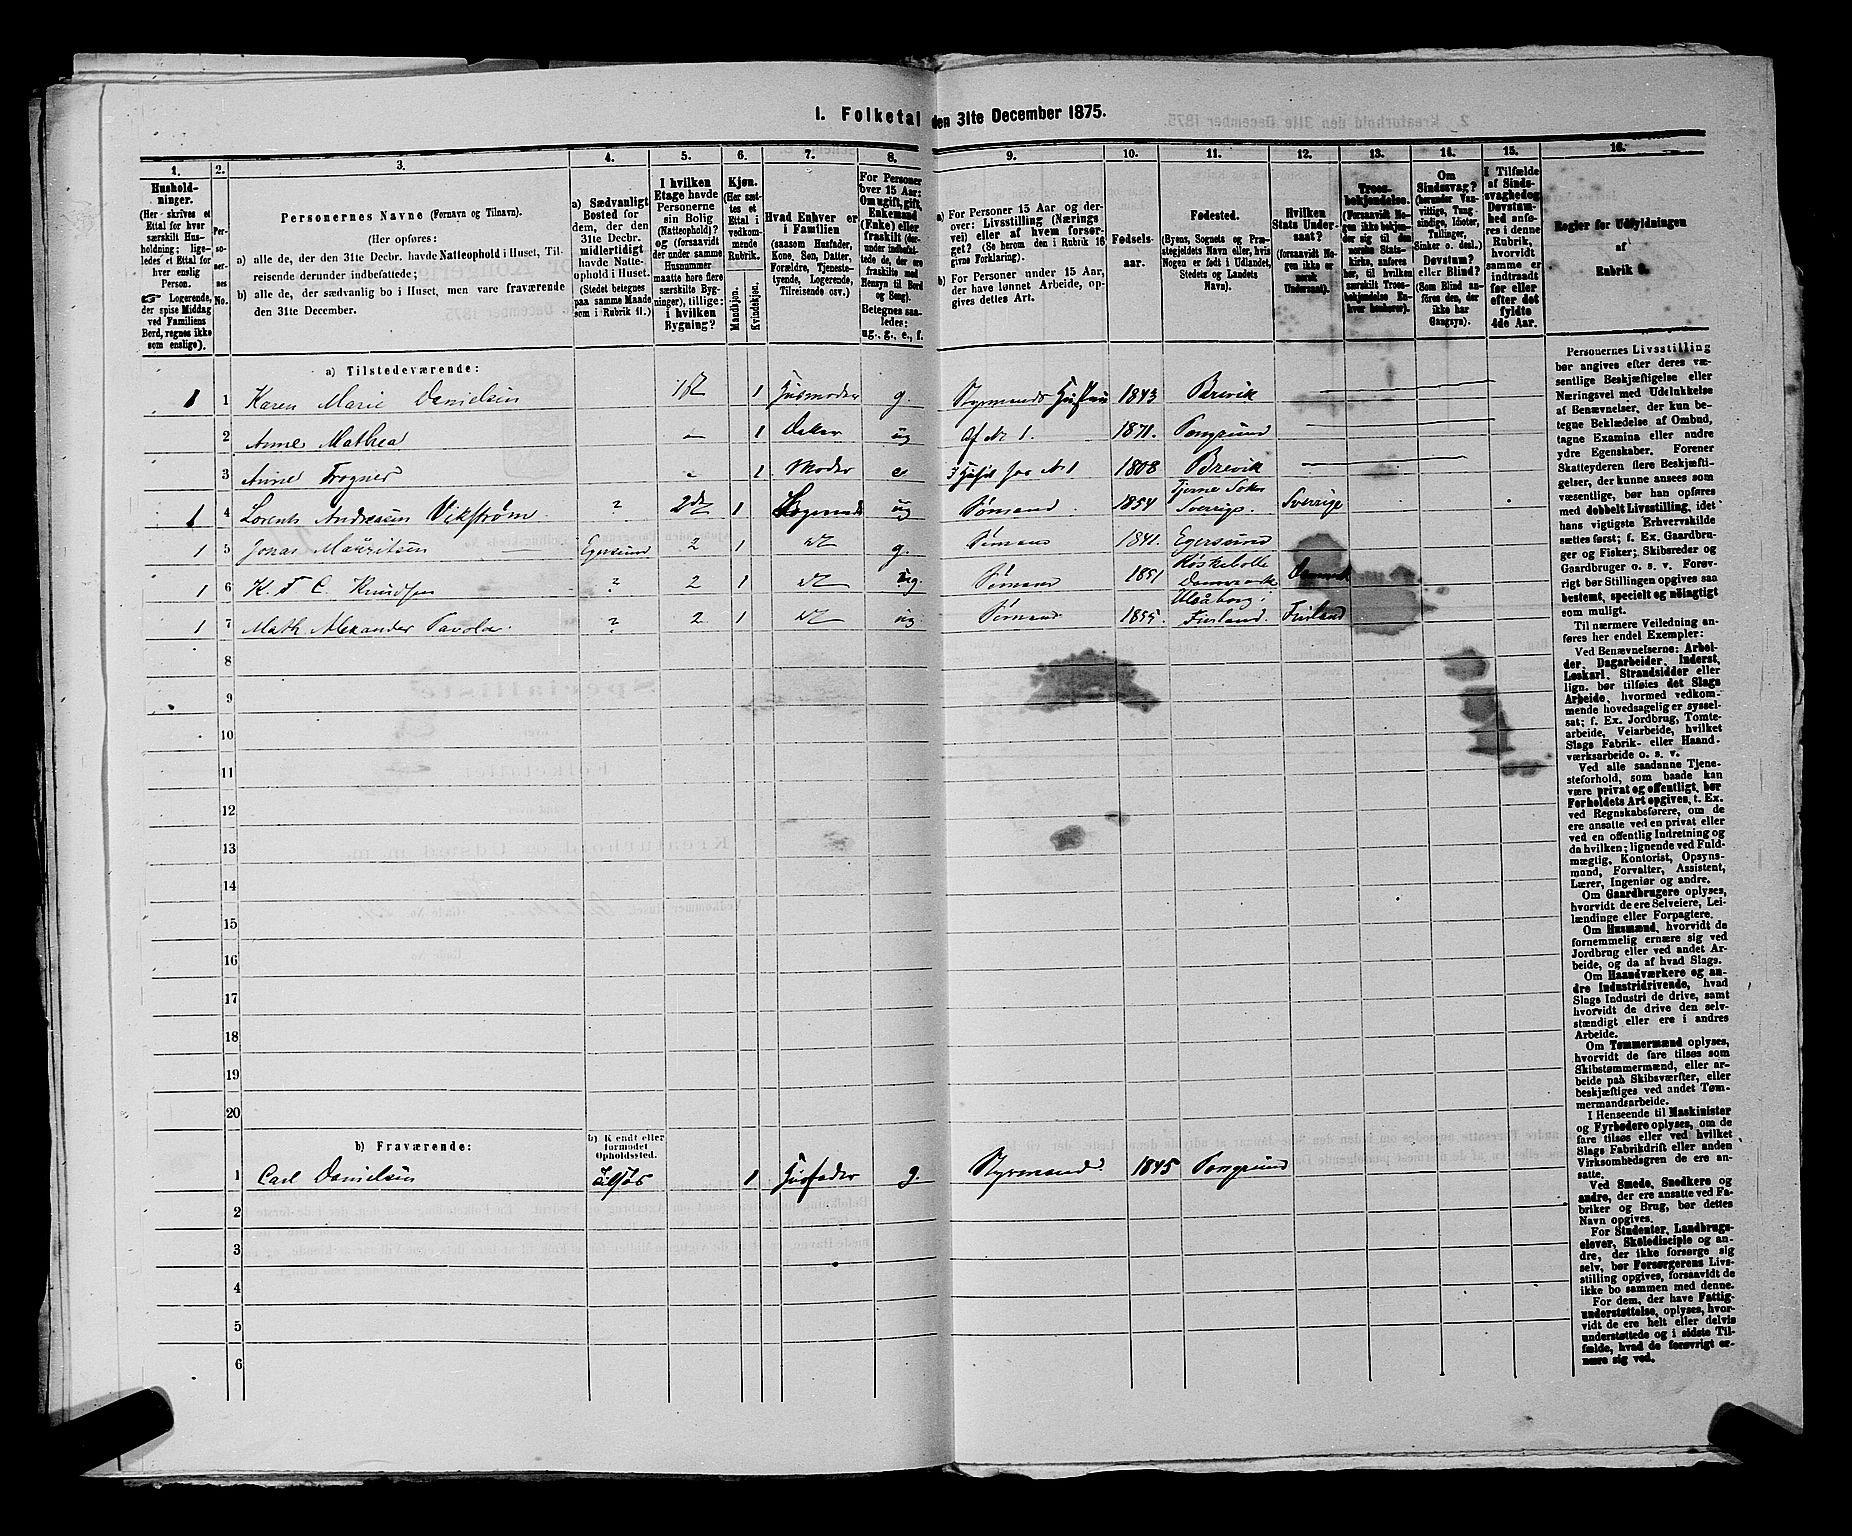 1. Folketal den 31te December 1875.
1. 2. 3. 4. 5. 6. 7. 8. 9. 10. 11. 12. 13. 14. 15. 16.
Hushold-
ninger.
(Her skrives et
Ettal for hver
særskilt Hus-
holdning; lige-
ledes et Ettal for
hver enslig
Person.
☞ Logerende,
der spise Middag
ved Familiens
Bord, regnes ikke
som enslige).
Per-
so-
ner-
nes
No.
Personernes Navne (Fornavn og Tilnavn).
(Her opføres:
a) alle de, der den 31te Decbr. havde Natteophold i Huset, Til-
reisende derunder indbefattede;
b) alle de, der sædvanlig bo i Huset, men vare fraværende
den 31te December.
a) Sædvanligt
Bosted for
dem, der den
31te Decbr.
midlertidigt
havde Natte-
ophold i Huset.
(Stedet betegnes
paa samme Maade
som i Rubrik 11.)
I hvilken
Etage havde
Personerne
sin Bolig
(Natteophold)?
og (forsaavidt
der under samme
Husnummer
maatte høre flere
særskilte Byg-
ninger), tillige:
i hvilken
Bygning?
Kjøn.
(Her sæt-
tes et
Ettal i
vedkom-
mende
Rubrik.
Mandkjøn.
Kvindekjøn.
Hvad Enhver er
i Familien
(saasom Husfader,
Kone, Søn, Datter,
Forældre, Tjeneste-
tyende, Logerende,
Tilreisende osv.)
For Personer
over 15 Aar:
Om ugift, gift,
Enkemand
(Enke) eller
fraskilt (der-
under indbefat-
tede de, der ere
fraskilte med
Hensyn til Bord
og Seng).
Betegnes saa-
ledes:
ug., g., e., f.
a) For Personer 15 Aar og der-
over: Livsstilling (Nærings
vei) eller af hvem forsør-
get? (Se herom den i Rubrik 16
givne Forklaring).
b) For Personer under 15 Aar,
der have lønnet Arbeide, op-
gives dettes Art.
Fødsels-
aar.
Fødested.
(Byens, Sognets og Præ-
stegjeldets Navn eller, hvis
Nogen er født i Udlandet,
Stedets og Landets
Navn).
Hvilken
Stats Under-
saat?
(forsaavidt No-
gen ikke er
norsk
Undersaat).
Troes-
bekjendelse.
(Forsaavidt No-
gen ikke bekjen-
der sig til den
norske Stats-
kirke, anføres
her, til hvilken
særskilt Troes-
bekjendelse En-
hver henhører).
Om
Sindssvag?
(herunder Van-
vittige, Tung-
sindige, Idioter,
Tullinger,
Sinker o. desl.)
Døvstum?
eller Blind?
(Som Blind an-
føres den, der
ikke har
Gangsyn).
I Tilfælde
af Sinds-
svaghed og
Døvstum-
hed anfø-
res i denne
Rubrik,
hvorvidt
samme er
indtraadt
før eller
efter det
fyldte
4de Aar.
Regler for Udfyldningen
af
Rubrik 9.
a) Tilstedeværende:
1 1 Karen Marie Danielsen 1st 1 Husmoder g. Styrmands Hustru 1843 Brevik
2 Anne Mathea 1 Datter ug Af No 1. 1871. Porsgrund
3 Anne Trogner 1 Moder e No 1 1808 Brevik
1 4 Lorents Andreasen Vikstrøm ? 2den 1 Logerende ug Sømand. 1854 Sverrige. Sverrige
1 5 Jonas Mauritsen Egersund 2 1 g. Sømand 1841. Egersund
1 6 K. F. C. Knudsen ? 2 1 ug. Sømand 1851 Danmark
1 7 Math Alexander Tavola. ? 2 1 ug. Sømand 1855. Uleåborg i Finland. Finland
8
9
10
11
12
13
14
15
16
17
18
19
20
b) Fraværende:
b) Kjendt eller
formodet
Opholdssted.
1 Carl Danielsen Tilsjøs 1 Husfader g. Styrmand 1845 Porsgrund
2
3
4
5
6
Personernes Livsstilling
bør angives efter deres væ-
sentlige Beskjæftigelse eller
Næringsvei med Udelukkelse
af Benævnelser, der kun be-
tegne Beklædelse af Ombud,
tagne Examina eller andre
ydre Egenskaber. Forener
Skatteyderen flere Beskjæfti-
gelser, der kunne ansees som
væsentlige, bør han opføres
med dobbelt Livsstilling, idet
hans vigtigste Erhvervskilde
sættes først; f. Ex. Gaardbru-
ger og Fisker; Skibsreder og
Gaardbruger o. s. v. Forøv-
rigt bør Stillingen opgives saa
bestemt, specielt og nøiagtigt
som muligt.
Til nærmere Veiledning an-
føres her endel Exempler:
Ved Benævnelserne: Arbei-
der, Dagarbeider, Inderst,
Løskarl, Strandsidder eller
lign. bør tilføies det Slags
Arbeide, hvormed vedkom-
mende hovedsagelig er syssel-
sat; f. Ex. Jordbrug, Tomte-
arbeide, Veiarbeide, hvilket
Slags Fabrik- eller Haand-
værksarbeide o. s. v.
Ved alle saadanne Tjene-
steforhold, som baade kan
være privat og offentligt, bør
Forholdets Art opgives, t. Ex.
ved Regnskabsførere, om de
ere ansatte ved en privat eller
ved en offentlig Indretning og
da hvilken; lignende ved Fuld-
mægtig, Kontorist, Opsyns-
mand, Forvalter, Assistent,
Lærer, Ingeniør og andre.
Om Gaardbrugere oplyses,
hvorvidt de ere Selveiere, Lei-
lændinge eller Forpagtere.
Om Husmænd, hvorvidt de
fornemmelig ernære sig ved
Jordbrug eller ved andet Ar-
beide, og da af hvad Slags.
Om Haandværkere og an-
dre Industridrivende, hvad
Slags Industri de drive, samt
hvorvidt de drive den selv-
stændigt eller ere i andres
Arbeide.
Om Tømmermænd oplyses,
hvorvidt de fare tilsøs som
Skibstømmermænd, eller ar-
beide paa Skibsværfter, eller
beskjæftiges ved andet Tøm-
mermandsarbeide.
I Henseende til Maskinister
og Fyrbødere oplyses, om de
fare tilsøs eller ved hvilket
Slags Fabrikdrift eller anden
Virksomhedsgren de ere an-
satte.
Ved Smede, Snedkere og
andre, der ere ansatte ved Fa-
briker og Brug, bør dettes
Navn opgives.
For Studenter, Landbrugs-
elever, Skoledisciple og an-
dre, der ikke forsørge sig
selv, bør Forsørgerens Livs-
stilling opgives, forsaavidt de
ikke bo sammen med denne.
For dem, der have Fattig-
understøttelse, oplyses, hvor-
vidt de ere helt eller delvis
understøttede og i sidste Til-
fælde, hvad de forøvrigt er-
nære sig ved.